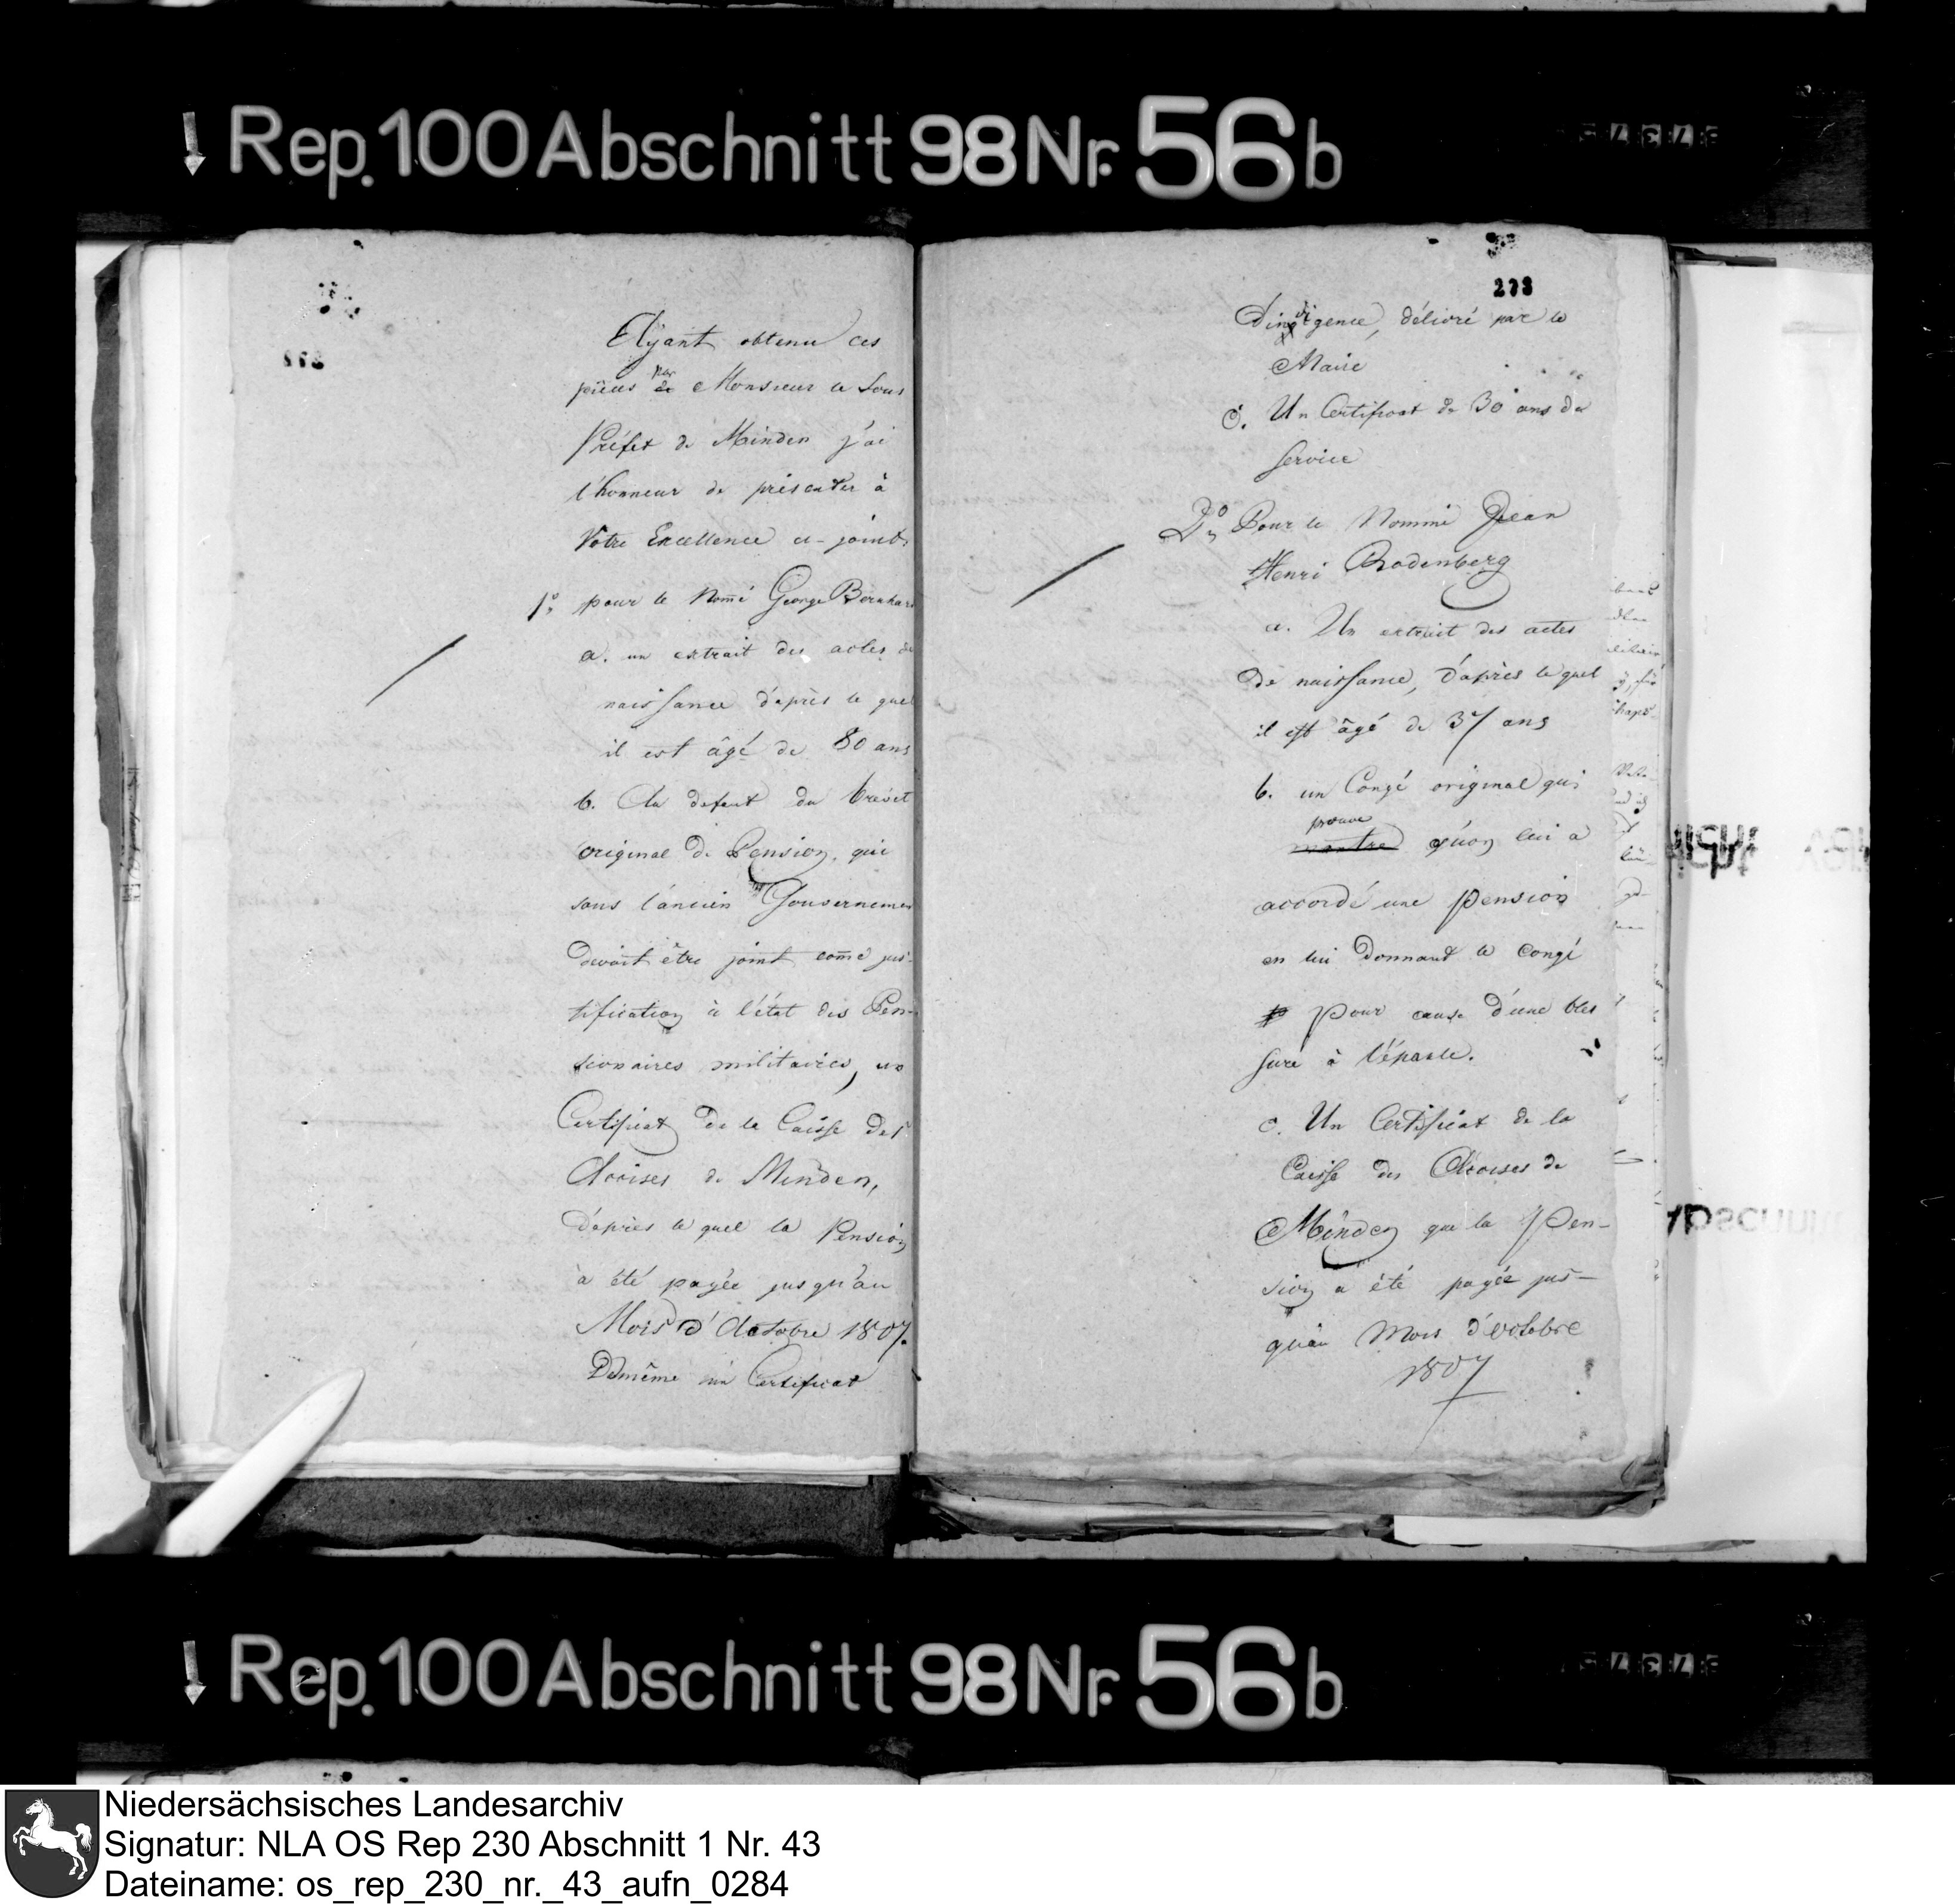 Rep. 100 Abschnitt 98 Nr. 56 b
Ayant obtenu ces
pièces par de Monsieur le Sous
Préfet de Minden j'ai
l'honneur de présenter à
Votre Excellence ci-joint.
1° pour le Nom̄é George Bernhard
a. un extrait des actes de
naissance d'après le quel
il est âgé de 80 ans
b. Au defaut du brévet
original de Pension, qui
sous l'ancien Gouvernement
devait être joint com̄e jus-
tification à l'état des Pen-
sionaires militaires, un
Certificat de la Caisse des
Accises de Minden,
d'après le quel la Pension
à été payée jusqu'au
Mois d'Octobre 1807.
Demême un Certificat
273
d'indigence, délivré par le
Maire
c. Un Certificat de 30 ans de
service
2° Pour le Nommé Jean
Henri Rodenberg
a. Un extrait des actes
de naissance, d'après le quel
il est âgé de 37 ans
b. un Congé original qui
prouve
montre qu'on lui a
accordé une pension
en lui donnant le congé
pour cause d'une bles
sure à l'épaule.
c. Un Certificat de la
Caisse des Accises de
Minden que la Pen-
sion a été payée jus-
qu'au Mois d'Octobre
1807
Rep. 100 Abschnitt 98 Nr. 56 b
Niedersächsisches Landesarchiv
Signatur: NLA OS Rep 230 Abschnitt 1 Nr. 43
Dateiname: os_rep_230_nr._43_aufn_0284